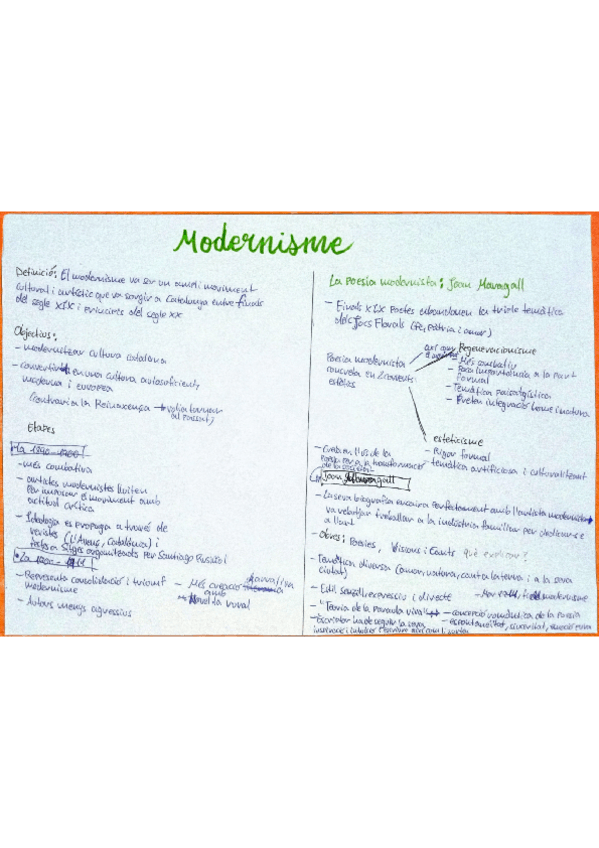 Modernisme
Definició: El modernisme va ser un ampli moviment
cultural i artístic que va sorgir a Catalunya entre finals
del segle XIX i principis del segle XX
Objectius:
- modernitzar cultura catalana
- convertir en una cultura autosuficient,
moderna i europea
(contraria la Renaixença → volia tornar
al passat)
Etapes
1a 1890-1900
- més combativa
- artistes modernistes lluiten
per imposar el moviment amb
actitud crítica
- Ideologia es propaga a través de
revistes (L'Avenç, Catalònia) i
festes a Sitges organitzats per Santiago Rusiñol
• 2a 1900-1911
- Representa consolidació i triomf
modernisme
- Autors menys agressius
- Més creació narrativa
amb
→ Novel·la rural
La poesia modernista: Joan Maragall
- Finals XIX Poetes abandonen la triple temàtica
dels Jocs Florals (Fe, pàtria i amor)
Poesia modernista
concreta en 2 corrents
estètics
Regeneracionisme
- Més combatiu
- Poca importància a la part
formal
- Temàtica paisatgística
- Anhelen integració home i natura
esteticisme
- Rigor formal
- temàtica artificiosa i culturalitzant
Joan Maragall
- La seva biografia encaixa perfectament amb l'artista modernista
va rebutjar treballar a la indústria familiar per dedicar-se
a l'art
- Obres: Poesies, Visions i Cants Què explica?
- Temàtica diversa (amor, natura, cant a la terra i a la seva
ciutat)
- Estil senzill expressiu i directe
- Mor 1911, fi del modernisme
- "Teoria de la paraula viva" → concepció romàntica de la poesia
- Escriptor ha de seguir la seva
- espontaneïtat, sinceritat, emoció pura